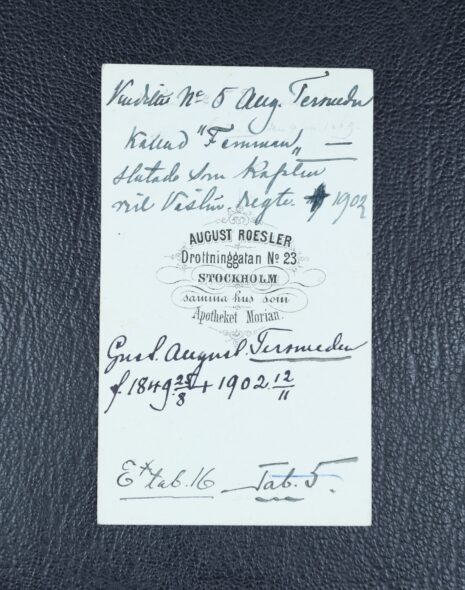 Vindilin Nº 5 Aug. Tersmeden
Kallad "Femman" —
slutade som Kapten
vid Västm. regte. † 1902
AUGUST ROESLER
Drottninggatan Nº 23
STOCKHOLM
samma hus som
Apotheket Morian.
Gust. August. Tersmeden
f. 1849 25/8 + 1902 12/11
Ex tab. 16 — Tab. 5.